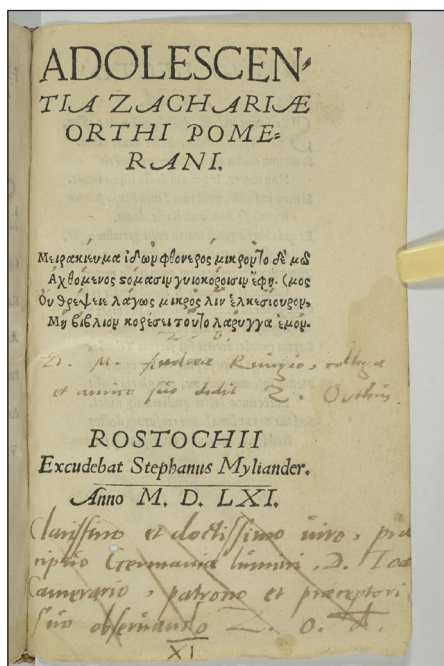 ADOLESCEN-
TIA ZACHARIÆ
ORTHI POME-
RANI.
Μειρακιευμα ἰδὼν φθονερὸς
Αχθόμενος
Οὐ θρέψειε λάγως μικρὸς λιν ἑλκεσίουρον,
Μὴ βιβλίον κορέσει τοῦτο λάρυγγα ἐμόν.
D. M. Andreæ collegæ
et amico suo dedit Z. Orthus.
ROSTOCHII
Excudebat Stephanus Myliander.
Anno M. D. LXI.
Clarissimo et doctissimo uiro, præ
cipuo Germaniæ lumini, D. Ioa
Camerario, patrono et præceptori
suo obseruando Z. O.
XI